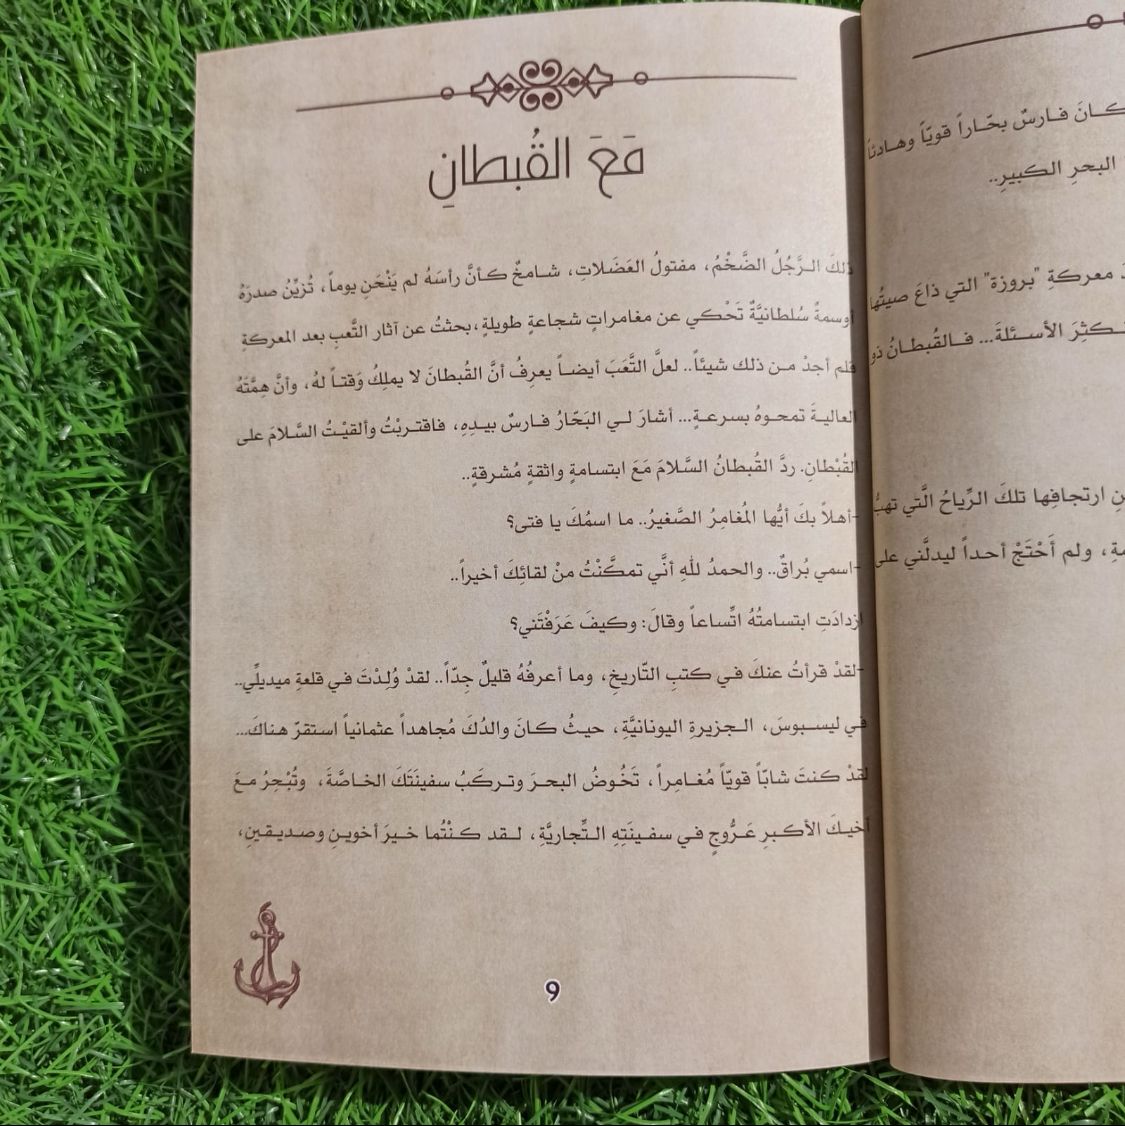 كانَ فارسٌ بحّاراً قويّاً وهادئاً
البحرِ الكبيرِ..
معركةِ "بروزة" التي ذاعَ صيتُها
الأسئلةَ... فالقُبطانُ ذو
ارتجافِها تلكَ الرِّياحُ الَّتي تهبُّ
ولم أَحْتَجْ أحداً ليدلَّني على
مَعَ القُبطانِ
ذلكَ الرَّجُلُ الضَّخْمُ، مفتولُ العَضَلاتِ، شامخٌ كأنَّ رأسَهُ لم يَنْحَنِ يوماً، تُزيِّنُ صدرَهُ
أوسمةٌ سُلطانيَّةٌ تَحْكي عن مغامراتٍ شجاعةٍ طويلةٍ،بحثتُ عن آثار التَّعبِ بعد المعركةِ
فلم أجدْ من ذلك شيئاً.. لعلَّ التَّعَبَ أيضاً يعرِفُ أنَّ القُبطانَ لا يملِكُ وَقتاً لهُ، وأنَّ هِمَّتَهُ
العاليةَ تمحوهُ بسرعةٍ... أشارَ لي البَحّارُ فارسٌ بيدِهِ، فاقتربْتُ وألقيْتُ السَّلامَ على
القُبْطانِ. ردَّ القُبطانُ السَّلامَ مَعَ ابتسامةٍ واثقةٍ مُشرقةٍ..
-أهلاً بكَ أيُّها المُغامِرُ الصَّغيرُ.. ما اسمُكَ يا فتى؟
-اسمي بُراقٌ.. والحمدُ للهِ أنَّي تمكَّنْتُ منْ لقائِكَ أخيراً..
ازدادَتِ ابتسامتُهُ اتِّساعاً وقالَ: وكيفَ عَرَفْتَني؟
-لقدْ قرأتُ عنكَ في كتبِ التّاريخِ، وما أعرفُهُ قليلٌ جِدّاً.. لقدْ وُلِدْتَ في قلعةِ ميديلِّي..
في ليسبوسَ، الجزيرةِ اليونانيَّةِ، حيثُ كانَ والدُكَ مُجاهداً عثمانياً استقرّ هناكَ...
لقدْ كنتَ شابّاً قويّاً مُغامِراً، تَخُوضُ البحرَ وتركَبُ سفينَتَكَ الخاصَّةَ، وتُبْحِرُ معَ
أخيكَ الأكبرِ عَرُّوجٍ في سفينَتِهِ التِّجاريَّةِ، لقد كنْتُما خيرَ أخوينِ وصديقينِ،
9